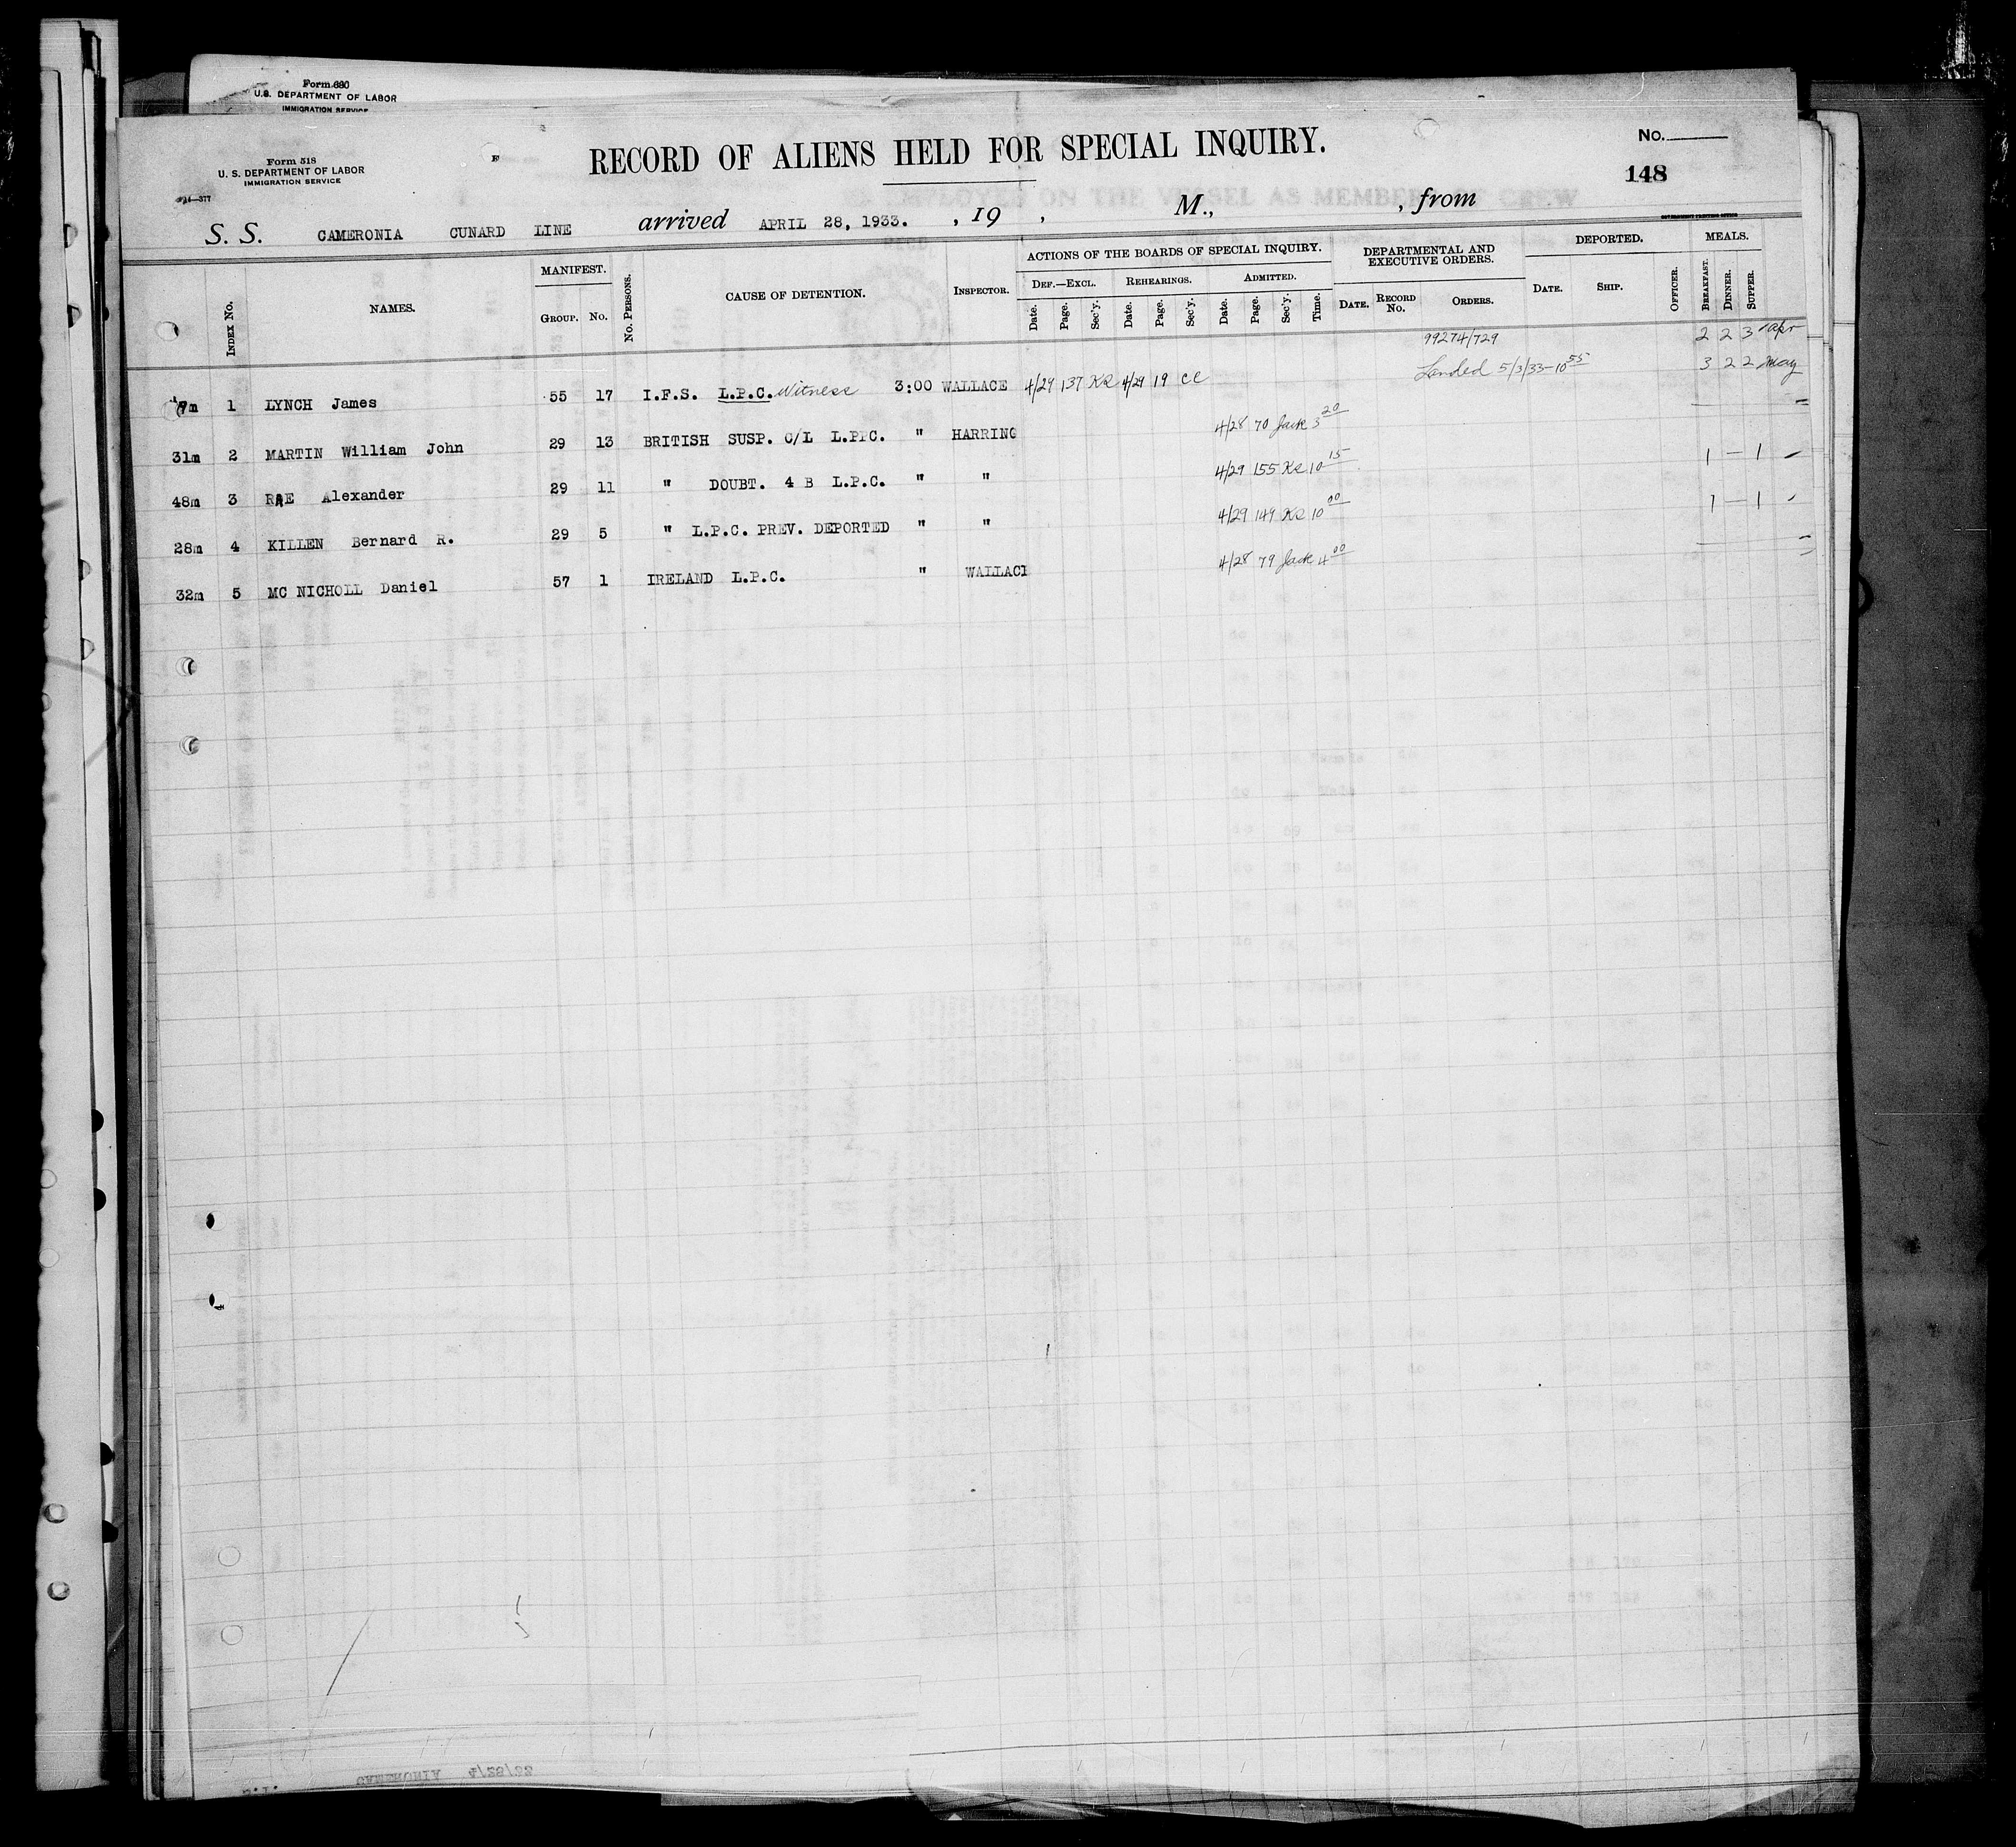 Form 680
U.S. DEPARTMENT OF LABOR
IMMIGRATION SERVICE
Form 518
U. S. DEPARTMENT OF LABOR
IMMIGRATION SERVICE
14—377
F
RECORD OF ALIENS HELD FOR SPECIAL INQUIRY.
No.
148
S. S. CAMERONIA CUNARD LINE arrived APRIL 28, 1933. , 19 , M., , from
GOVERNMENT PRINTING OFFICE
INDEX NO. NAMES. MANIFEST. GROUP. NO. NO. PERSONS. CAUSE OF DETENTION. INSPECTOR. ACTIONS OF THE BOARDS OF SPECIAL INQUIRY. DEPARTMENTAL AND EXECUTIVE ORDERS. DEPORTED. MEALS.
DEF.—EXCL. REHEARINGS. ADMITTED.
Date. Page. Sec'y. Date. Page. Sec'y. Date. Page. Sec'y. Time. DATE. RECORD NO. ORDERS. DATE. SHIP. OFFICER. BREAKFAST. DINNER. SUPPER.
99274/729 2 2 3 Apr
Landed 5/3/33-10 55 3 2 2 May
1 LYNCH James 55 17 I.F.S. L.P.C. Witness 3:00 WALLACE 4/29 137 KR 4/29 19 CC
31m 2 MARTIN William John 29 13 BRITISH SUSP. C/L L.PPC. " HARRING 4/28 70 Jack 3 20
48m 3 RAE Alexander 29 11 " DOUBT. 4 B L.P.C. " " 4/29 155 KR 10 15 1 — 1
28m 4 KILLEN Bernard R. 29 5 " L.P.C. PREV. DEPORTED " " 4/29 149 KR 10 00 1 — 1
32m 5 MC NICHOLL Daniel 57 1 IRELAND L.P.C. " WALLACE 4/28 79 Jack 4 00
CAMERONIA 4/28/33